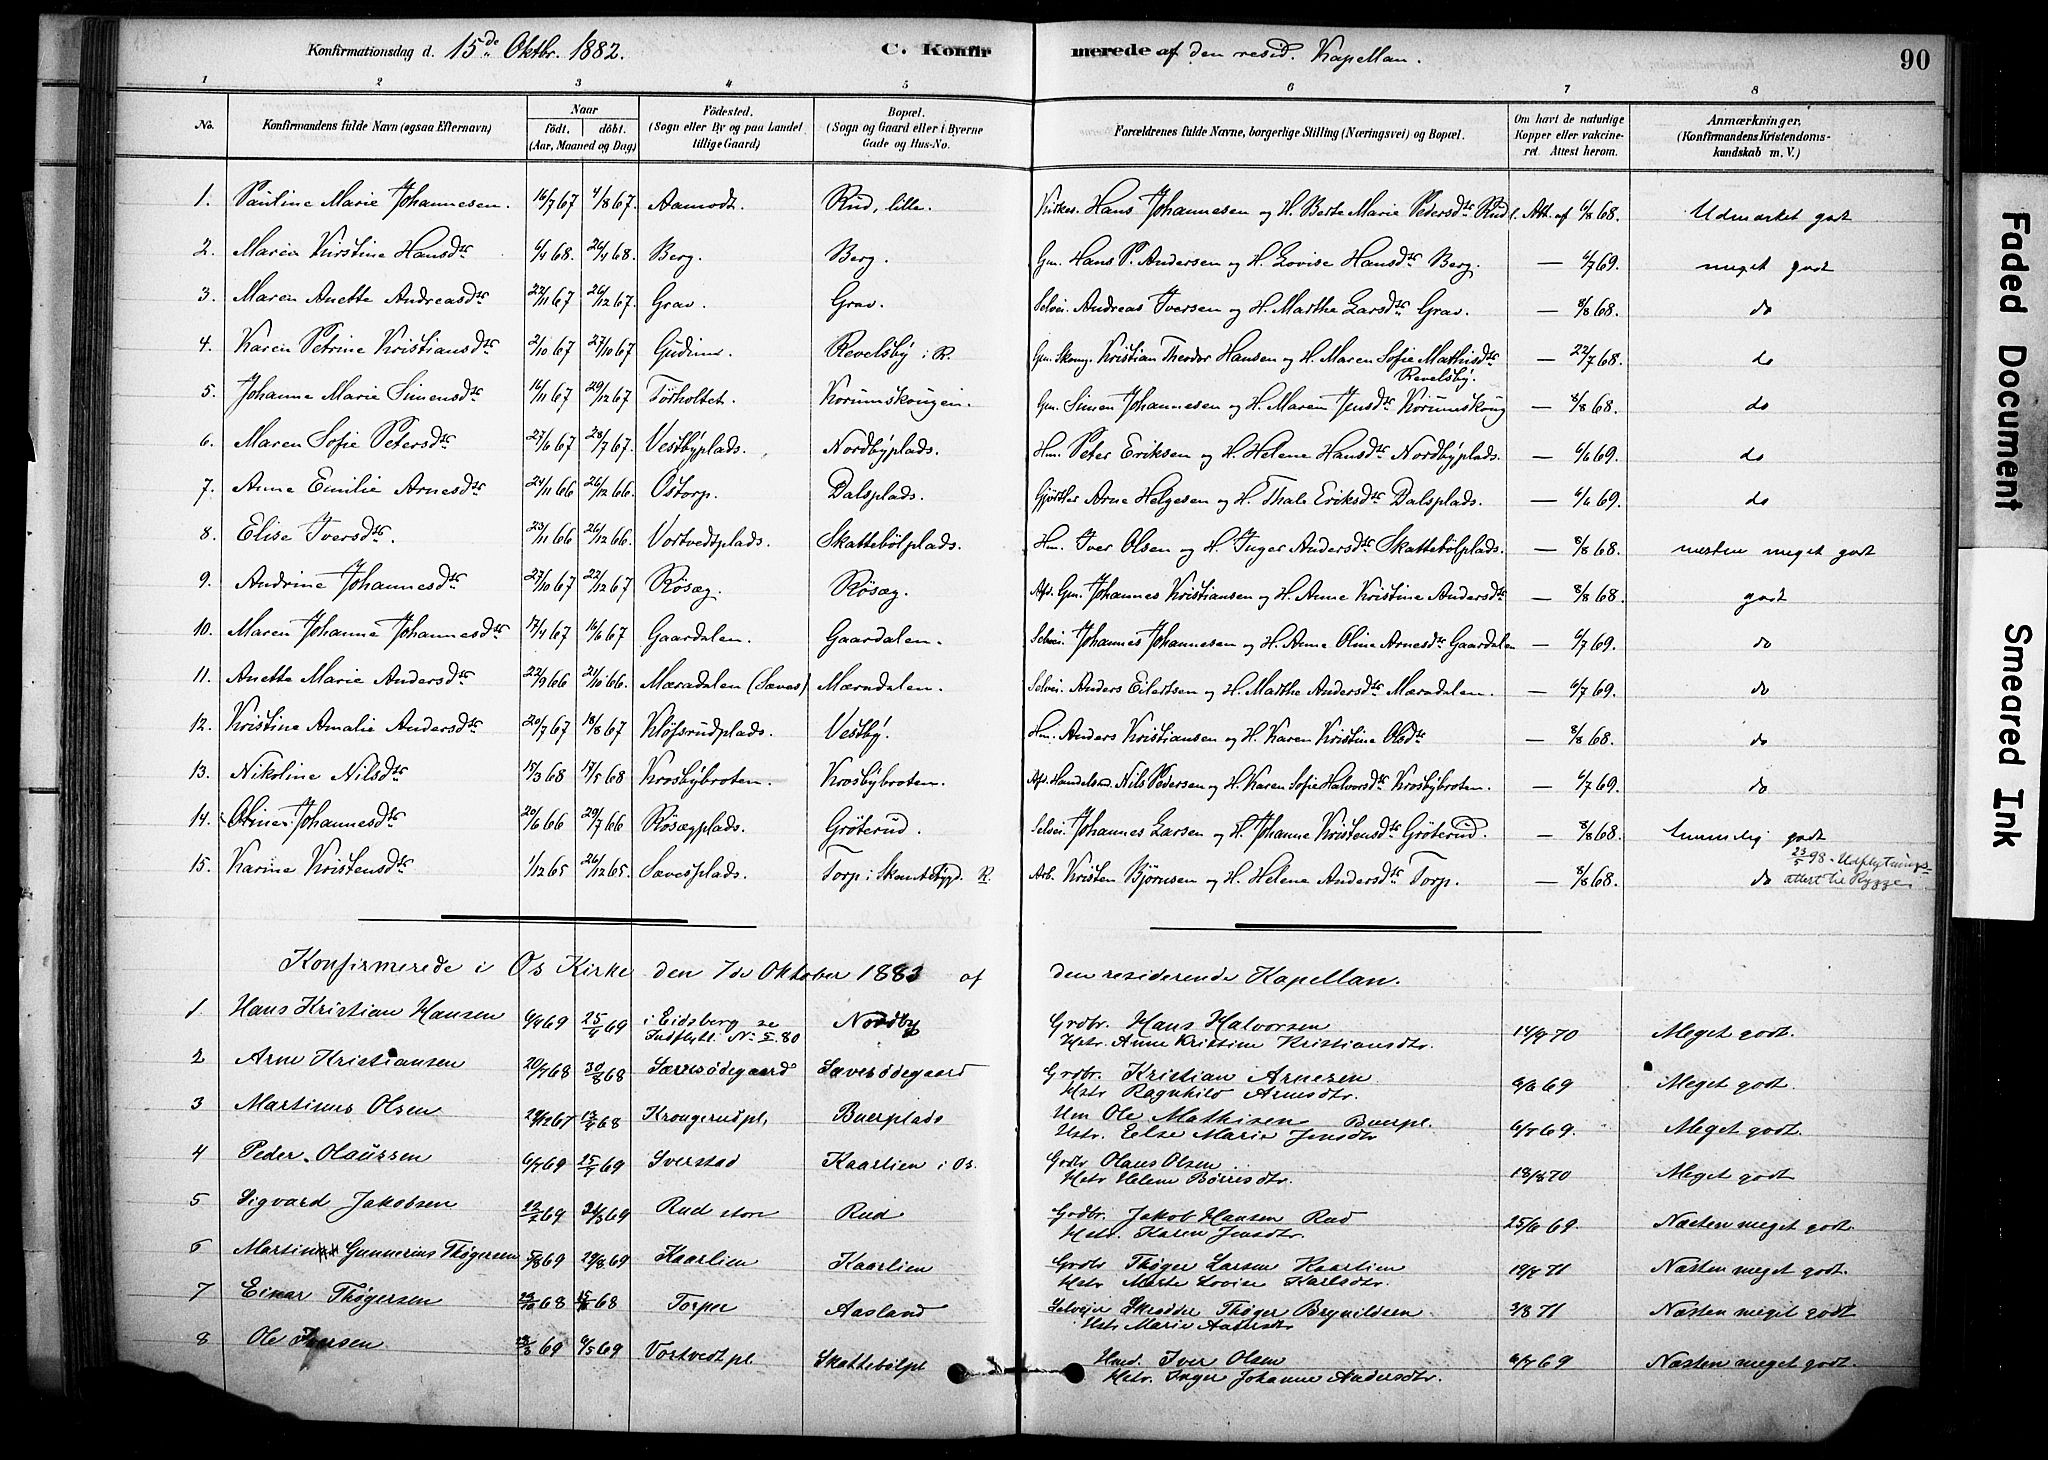 Konfirmationsdag d. 15de Oktbr. 1882. C. Konfirmerede af den resid. Kapellan. 90
1 2 3 4 5 6 7 8
No. Konfirmandens fulde Navn (ogsaa Efternavn) Naar født. døbt. (Aar, Maaned og Dag) Födested. (Sogn eller By og paa Landet tillige Gaard) Bopæl. (Sogn og Gaard eller i Byerne Gade og Hus-No. Forældrenes fulde Navne, borgerlige Stilling (Næringsvei) og Bopæl. Om havt de naturlige Kopper eller vakcineret. Attest herom. Anmærkninger, (Konfirmandens Kristendomskundskab m. V.)
1. Pauline Marie Johannesen. 16/7 67 4/8 67. Aamodt. Rud, lille. Kirkes. Hans Johannesen og H. Berte Marie Pedersdtr Rud l. Att. af 6/8 68. Udmærket godt
2. Maren Kirstine Hansdtr 6/4 68. 26/4 68. Berg. Berg. Gm. Hans P. Andersen og H. Lovise Hansdtr Berg. — 6/7 69. meget godt
3. Maren Anette Andreasdtr 22/11 67 26/12 67. Grav. Grav. Selvei. Andreas Iversen og H. Marthe Larsdtr Grav. — 8/8 68. do
4. Karen Petrine Kristiansdtr 2/10 67 27/10 67. Gudim. Revelsby i R. Gm. Skoug. Kristian Theodor Hansen og H. Maren Sofie Mathisdtr Revelsby. — 22/7 68. do
5. Johanne Marie Simensdtr 16/11 67 29/12 67 Torholtet. Korumskougen. Gm. Simen Johannesen og H. Maren Jensdtr Korumskoug — 8/8 68. do
6. Maren Sofie Petersdtr 27/6 67 28/7 67. Vestbyplads. Nordbyplads. Hm. Peter Eriksen og H. Helene Hansdtr Nordbyplads. — 6/6 69. do
7. Anne Emilie Arnesdtr 24/11 66 26/12 66. Ostorp. Dalsplads. Gjørtler Arne Helgesen og H. Thale Eriksdtr Dalsplads. — 6/6 69. do
8. Elise Iversdtr. 23/11 66 26/12 66. Vortvedtplads. Skattebölplads. Hm. Iver Olsen og H. Inger Andersdtr Skattebölplads. — 8/8 68. næsten meget godt
9. Andrine Johannesdtr 27/10 67 22/12 67 Rösæg. Rösæg. Afd. Gm. Johannes Kristiansen og H. Anne Kristine Andersdtr — 8/8 68. godt
10. Maren Johanne Johannesdtr 17/4 67 16/6 67 Gaardalen. Gaardalen. Selvei. Johannes Johannesen og H. Anne Oline Arnesdtr Gaardalen — 6/7 69. do
11. Anette Marie Andersdtr 22/9 66 21/10 66. Mæradalen (Sæves) Mæradalen. Selvei. Anders Eilertsen og H. Marthe Andersdtr Mæradalen. — 6/7 69. do
12. Kristine Amalie Andersdtr 20/7 67 18/8 67 Kløfsrudplads. Vestby. Hm. Anders Kristiansen og H. Karen Kristine Olsdtr — 8/8 68. do
13. Nikoline Nilsdtr 15/3 68 17/5 68 Krosbybroten. Krosbybroten. Afd. Handelsmd. Nils Pedersen og H. Karen Sofie Halvorsdtr Krosbybroten. — 6/7 69. do
14. Oline Johannesdtr 20/6 66 29/7 66 Rösægplads. Gröterud. Selvei. Johannes Larsen og H. Johanne Kristensdtr Gröterud. — 8/8 68. temmelig godt
15. Karine Kristensdtr 1/12 65 26/12 65. Sævesplads. Torp i Skantebygd. R. Arb. Kristen Björnsen og H. Helene Andersdtr Torp. — 8/8 68. do 23/5 98. Udflytnings-
attest til Rygge
Konfirmerede i Os Kirke den 7de Oktober 1883 af den residerende Kapellan.
1 Hans Kristian Hansen 6/4 69 25/4 69 i Eidsberg se Indflytt. No 80 Nordby Grdbr. Hans Halvorsen Hstr. Anne Kristine Kristiansdtr. 14/9 70 Meget godt.
2 Arne Kristiansen 20/7 68 30/8 68 Sævesödegaard Sævesödegaard Grdbr. Kristian Arnesen Hstr Ragnhild Arnesdtr. 6/6 69 Meget godt.
3 Martinus Olsen 28/12 67 13/4 68 Krougerudpl. Buerplads Hm Ole Mathisen Buerpl. Hstr. Else Marie Jensdtr 6/7 69. Meget godt.
4 Peder Olaussen 6/7 69 25/7 69 Sverstad Kaarlien i Os. Grdbr Olaus Olsen Hstr Helene Börresdtr. 18/8 70 Meget godt
5 Sigvard Jakobsen 22/2 69 21/3 69 Rud store Rud Grdbr. Jakob Hansen Rud Hstr. Karen Jensdtr. 25/6 69 Næsten meget godt.
6 Martin Gunnerius Thøgersen 5/8 69 29/8 69 Kaarlien Kaarlien Grdbr Thøger Larsen Kaarlien Hstr Marte Lovise Karlsdtr. 19/8 71 Næsten meget godt.
7 Einar Thøgersen 23/10 68 15/11 68 Torper Aasland Selveier Skrædder Thøger Brynildsen Hstr Marie Andersdtr 3/8 71 Næsten meget godt
8 Ole Iversen 28/3 69 6/5 69 Vortvedtpl Skattebölpl Hmd. Iver Olsen Hstr. Inger Johanne Andersdtr. 6/7 69 Næsten meget godt.
Faded Document
Smeared Ink